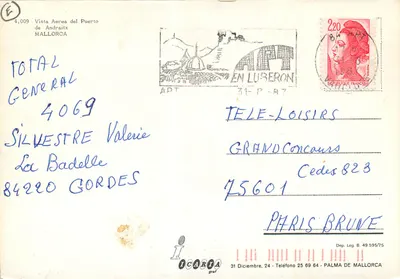 E
4.009 Vista Aerea del Puerto
de Andraitx
MALLORCA
TOTAL
GENERAL
4069
SILVESTRE Valérie
La Badelle
84220 GORDES
APT
EN LUBERON
APT
2,20
TELE-LOISIRS
GRAND Concours
Cedex 823
75601
PARIS BRUNE
Dep. Leg. B. 49.595/75
ICARIA
31 Diciembre, 24 - Teléfono 25 69 64 - PALMA DE MALLORCA